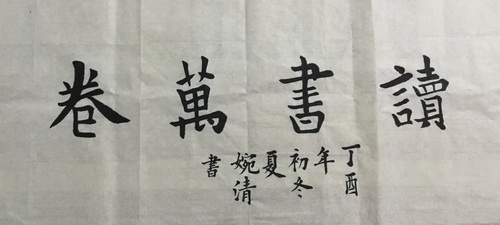 讀書萬卷
丁酉
年
初冬
夏
婉清
書